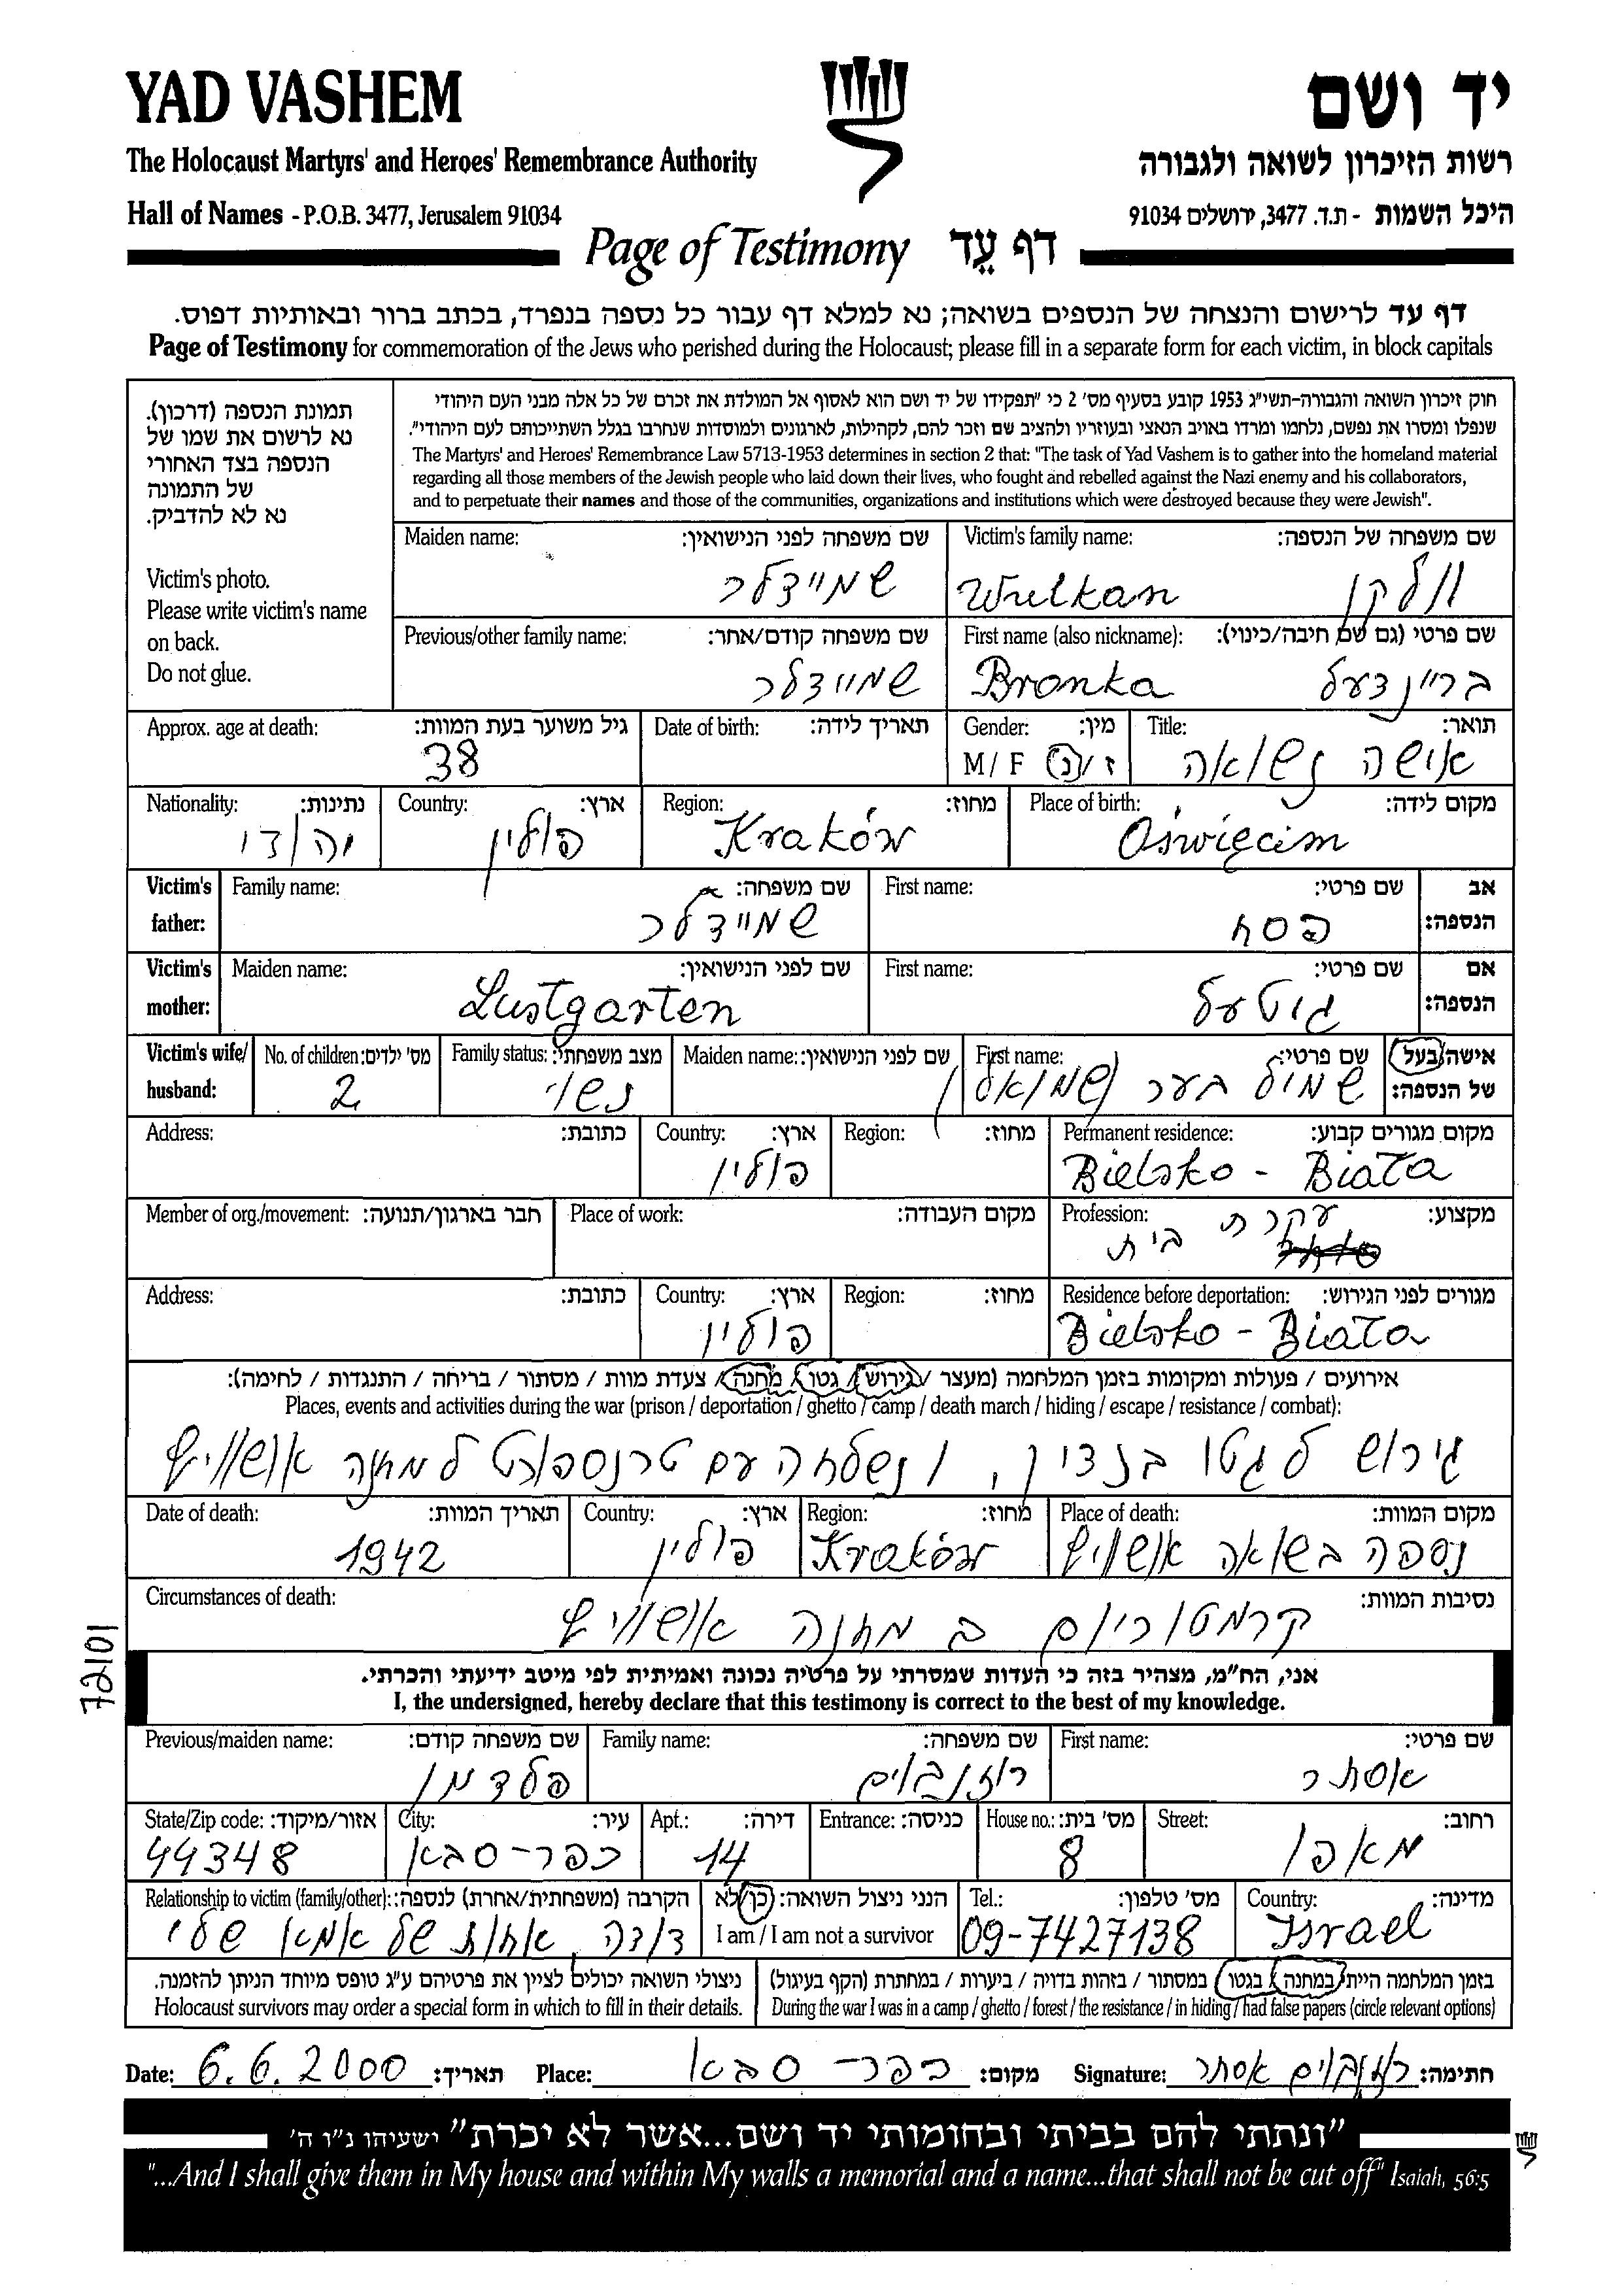 YAD VASHEM
יד ושם
The Holocaust Martyrs' and Heroes' Remembrance Authority
רשות הזיכרון לשואה ולגבורה
Hall of Names - P.O.B. 3477, Jerusalem 91034
היכל השמות - ת.ד. 3477, ירושלים 91034
Page of Testimony דף עֵד
דף עד לרישום והנצחה של הנספים בשואה; נא למלא דף עבור כל נספה בנפרד, בכתב ברור ובאותיות דפוס.
Page of Testimony for commemoration of the Jews who perished during the Holocaust; please fill in a separate form for each victim, in block capitals
תמונת הנספה (דרכון).
נא לרשום את שמו של
הנספה בצד האחורי
של התמונה
נא לא להדביק.
Victim's photo.
Please write victim's name
on back.
Do not glue.
חוק זיכרון השואה והגבורה-תשי"ג 1953 קובע בסעיף מס' 2 כי "תפקידו של יד ושם הוא לאסוף אל המולדת את זכרם של כל אלה מבני העם היהודי
שנפלו ומסרו את נפשם, נלחמו ומרדו באויב הנאצי ובעוזריו ולהציב שם וזכר להם, לקהילות, לארגונים ולמוסדות שנחרבו בגלל השתייכותם לעם היהודי".
The Martyrs' and Heroes' Remembrance Law 5713-1953 determines in section 2 that: "The task of Yad Vashem is to gather into the homeland material
regarding all those members of the Jewish people who laid down their lives, who fought and rebelled against the Nazi enemy and his collaborators,
and to perpetuate their names and those of the communities, organizations and institutions which were destroyed because they were Jewish".
Victim's family name: שם משפחה של הנספה:
Wulkan וולקן
Maiden name: שם משפחה לפני הנישואין:
שמיידלר
First name (also nickname): שם פרטי (גם שם חיבה/כינוי):
Bronka בריינדעל
Previous/other family name: שם משפחה קודם/אחר:
שמיידלר
Title: תואר:
אישה נשואה
Gender: מין:
M / F ז / נ
Date of birth: תאריך לידה:
Approx. age at death: גיל משוער בעת המוות:
38
Place of birth: מקום לידה:
Oświęcim
Region: מחוז:
Kraków
Country: ארץ:
פולין
Nationality: נתינות:
יהודי
אב הנספה: Victim's father:
First name: שם פרטי:
פסח
Family name: שם משפחה:
שמיידלר
אם הנספה: Victim's mother:
First name: שם פרטי:
גיטעל
Maiden name: שם לפני הנישואין:
Lustgarten
אישה/בעל של הנספה: Victim's wife/husband:
First name: שם פרטי:
שמיל בער (שמואל)
Maiden name: שם לפני הנישואין:
Family status: מצב משפחתי:
נשוי
No. of children: מס' ילדים:
2
Permanent residence: מקום מגורים קבוע:
Bielsko - Biała
Region: מחוז:
Country: ארץ:
פולין
Address: כתובת:
Profession: מקצוע:
עקרת בית
Place of work: מקום העבודה:
Member of org./movement: חבר בארגון/תנועה:
Residence before deportation: מגורים לפני הגירוש:
Bielsko - Biała
Region: מחוז:
Country: ארץ:
פולין
Address: כתובת:
אירועים / פעולות ומקומות בזמן המלחמה (מעצר / גירוש / גטו / מחנה / צעדת מוות / מסתור / בריחה / התנגדות / לחימה):
Places, events and activities during the war (prison / deportation / ghetto / camp / death march / hiding / escape / resistance / combat):
גירוש לגטו בנדין, ונשלחה עם טרנספורט למחנה אושוויץ
Place of death: מקום המוות:
נספה בשואה אושוויץ
Region: מחוז:
Kraków
Country: ארץ:
פולין
Date of death: תאריך המוות:
1942
Circumstances of death: נסיבות המוות:
קרמטוריום ב מחנה אושוויץ
72101
אני, הח"מ, מצהיר בזה כי העדות שמסרתי על פרטיה נכונה ואמיתית לפי מיטב ידיעתי והכרתי.
I, the undersigned, hereby declare that this testimony is correct to the best of my knowledge.
First name: שם פרטי:
אסתר
Family name: שם משפחה:
רוזנבלום
Previous/maiden name: שם משפחה קודם:
פלדמן
Street: רחוב:
מאפו
House no.: מס' בית:
8
Entrance: כניסה:
Apt.: דירה:
14
City: עיר:
כפר-סבא
State/Zip code: אזור/מיקוד:
44348
Country: מדינה:
Israel
Tel.: מס' טלפון:
09-7427138
הנני ניצול השואה: כן/לא
I am / I am not a survivor
Relationship to victim (family/other): הקרבה (משפחתית/אחרת) לנספה:
דודה, אחות של אמא שלי
בזמן המלחמה הייתי במחנה / בגטו / במסתור / בזהות בדויה / ביערות / במחתרת (הקף בעיגול)
During the war I was in a camp / ghetto / forest / the resistance / in hiding / had false papers (circle relevant options)
ניצולי השואה יכולים לציין את פרטיהם ע"ג טופס מיוחד הניתן להזמנה.
Holocaust survivors may order a special form in which to fill in their details.
Date: 6.6.2000 תאריך: Place: כפר-סבא מקום: Signature: רוזנבלום אסתר חתימה:
"ונתתי להם בביתי ובחומותי יד ושם...אשר לא יכרת" ישעיהו נ"ו ה'
"...And I shall give them in My house and within My walls a memorial and a name...that shall not be cut off" Isaiah, 56:5